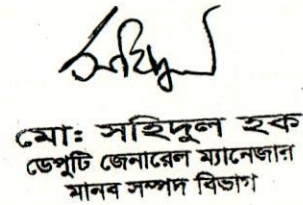 সহিদুল
মো: সহিদুল হক
ডেপুটি জেনারেল ম্যানেজার
মানব সম্পদ বিভাগ